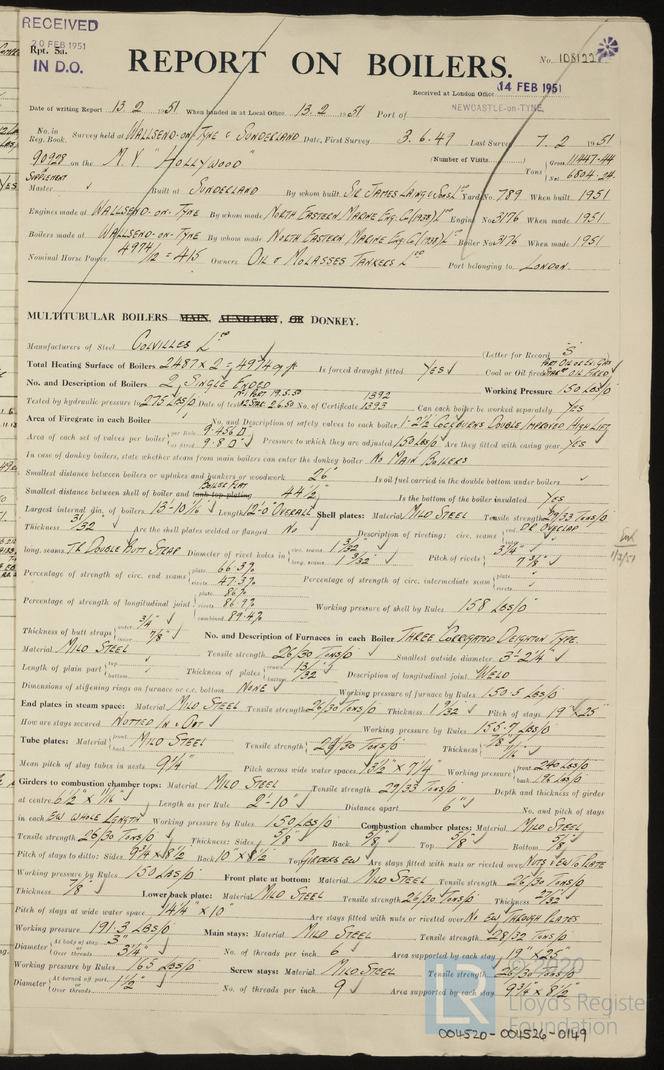 RECEIVED
20 FEB 1951
Rpt. 5a.
IN D.O.
REPORT ON BOILERS.
No. 108122
Received at London Office 14 FEB 1951
NEWCASTLE-on-TYNE
Date of writing Report 13.2.1951 When handed in at Local Office 13.2.1951 Port of
No. in Reg. Book. Survey held at WALLSEND-ON-TYNE & SUNDERLAND Date, First Survey 3.6.49 Last Survey 7.2.1951
90928 on the M.V. "HOLLYWOOD" (Number of Visits) Tons Gross 11447.44 Net 6804.24
SUPPLEMENT
Master Built at SUNDERLAND By whom built SIR JAMES LAING & SONS Ltd Yard No. 789 When built 1951
Engines made at WALLSEND-ON-TYNE By whom made NORTH EASTERN MARINE ENG. Co (1938) Ltd Engine No. 3176 When made 1951
Boilers made at WALLSEND-ON-TYNE By whom made NORTH EASTERN MARINE ENG. Co (1938) Ltd Boiler No. 3176 When made 1951
Nominal Horse Power 4974/12 = 415 Owners OIL & MOLASSES TANKERS Ltd Port belonging to LONDON.
MULTITUBULAR BOILERS MAIN, AUXILIARY, OR DONKEY.
Manufacturers of Steel COLVILLES Ltd (Letter for Record S)
Total Heating Surface of Boilers 2487 x 2 = 4974 sq ft Is forced draught fitted YES Coal or Oil fired OIL FIRED
No. and Description of Boilers 2 SINGLE ENDED Working Pressure 150 LBS/□
Tested by hydraulic pressure to 275 LBS/□ Date of test No. of Certificate 1392 1393 Can each boiler be worked separately YES
Area of Firegrate in each Boiler No. and Description of safety valves to each boiler 1-2½ COCKBURNS DOUBLE IMPROVED HIGH LIFT
Area of each set of valves per boiler per Rule 9.456□ as fitted 9.80□ Pressure to which they are adjusted 150 LBS/□ Are they fitted with easing gear YES
In case of donkey boilers, state whether steam from main boilers can enter the donkey boiler NO MAIN BOILERS
Smallest distance between boilers or uptakes and bunkers or woodwork 26" Is oil fuel carried in the double bottom under boilers
Smallest distance between shell of boiler and tank top plating BOILER FLAT 44½" Is the bottom of the boiler insulated YES
Largest internal dia. of boilers 13'-10 1/16" Length 12'-0" OVERALL Shell plates: Material MILD STEEL Tensile strength 29/33 TONS/□
Thickness 31/32" Are the shell plates welded or flanged NO Description of riveting: circ. seams end DR OVERLAP
long. seams TR DOUBLE BUTT STRAP Diameter of rivet holes in circ. seams 1 3/32" long. seams 1 3/32" Pitch of rivets 3¼" 7⅞"
Percentage of strength of circ. end seams plate 66.3% rivets 47.3% Percentage of strength of circ. intermediate seam plate rivets
Percentage of strength of longitudinal joint plate 86% rivets 86.9% combined 89.4% Working pressure of shell by Rules 158 LBS/□
Thickness of butt straps outer ¾" inner ⅞" No. and Description of Furnaces in each Boiler THREE CORRUGATED DEIGHTON TYPE.
Material MILD STEEL Tensile strength 26/30 TONS/□ Smallest outside diameter 3'-2¼"
Length of plain part top bottom Thickness of plates crown bottom 13/32" Description of longitudinal joint WELD
Dimensions of stiffening rings on furnace or c.c. bottom NONE Working pressure of furnace by Rules 150.5 LBS/□
End plates in steam space: Material MILD STEEL Tensile strength 26/30 TONS/□ Thickness 1 9/32" Pitch of stays 19" x 25"
How are stays secured NUTTED IN & OUT Working pressure by Rules 155.7 LBS/□
Tube plates: Material front back MILD STEEL Tensile strength 26/30 TONS/□ Thickness ⅞"
Mean pitch of stay tubes in nests 9¼" Pitch across wide water spaces 13½" x 7¼" Working pressure front 240 LBS/□ back 176 LBS/□
Girders to combustion chamber tops: Material MILD STEEL Tensile strength 29/33 TONS/□ Depth and thickness of girder
at centre 6½" x 7/16" Length as per Rule 2'-10" Distance apart 6" No. and pitch of stays
in each EW WHOLE LENGTH Working pressure by Rules 150 LBS/□ Combustion chamber plates: Material MILD STEEL
Tensile strength 26/30 TONS/□ Thickness: Sides ⅝" Back ⅝" Top ⅝" Bottom ⅞"
Pitch of stays to ditto: Sides 9¾ x 8½ Back 10" x 8½ Top GIRDERS EW Are stays fitted with nuts or riveted over NUTS & EW TO PLATE
Working pressure by Rules 150 LBS/□ Front plate at bottom: Material MILD STEEL Tensile strength 26/30 TONS/□
Thickness ⅞" Lower back plate: Material MILD STEEL Tensile strength 26/30 TONS/□ Thickness 27/32"
Pitch of stays at wide water space 14¼" x 10" Are stays fitted with nuts or riveted over NO EW THROUGH PLATES
Working pressure 191.3 LBS/□ Main stays: Material MILD STEEL Tensile strength 28/32 TONS/□
Diameter At body of stay 3" or Over threads 3¼" No. of threads per inch 6 Area supported by each stay 19" x 25"
Working pressure by Rules 165 LBS/□ Screw stays: Material MILD STEEL Tensile strength 26/30 TONS/□
Diameter At turned off part or Over threads 1½" No. of threads per inch 9 Area supported by each stay 9¾ x 8½"
© 2020
LR
Lloyd's Register
Foundation
004520-004526-0149